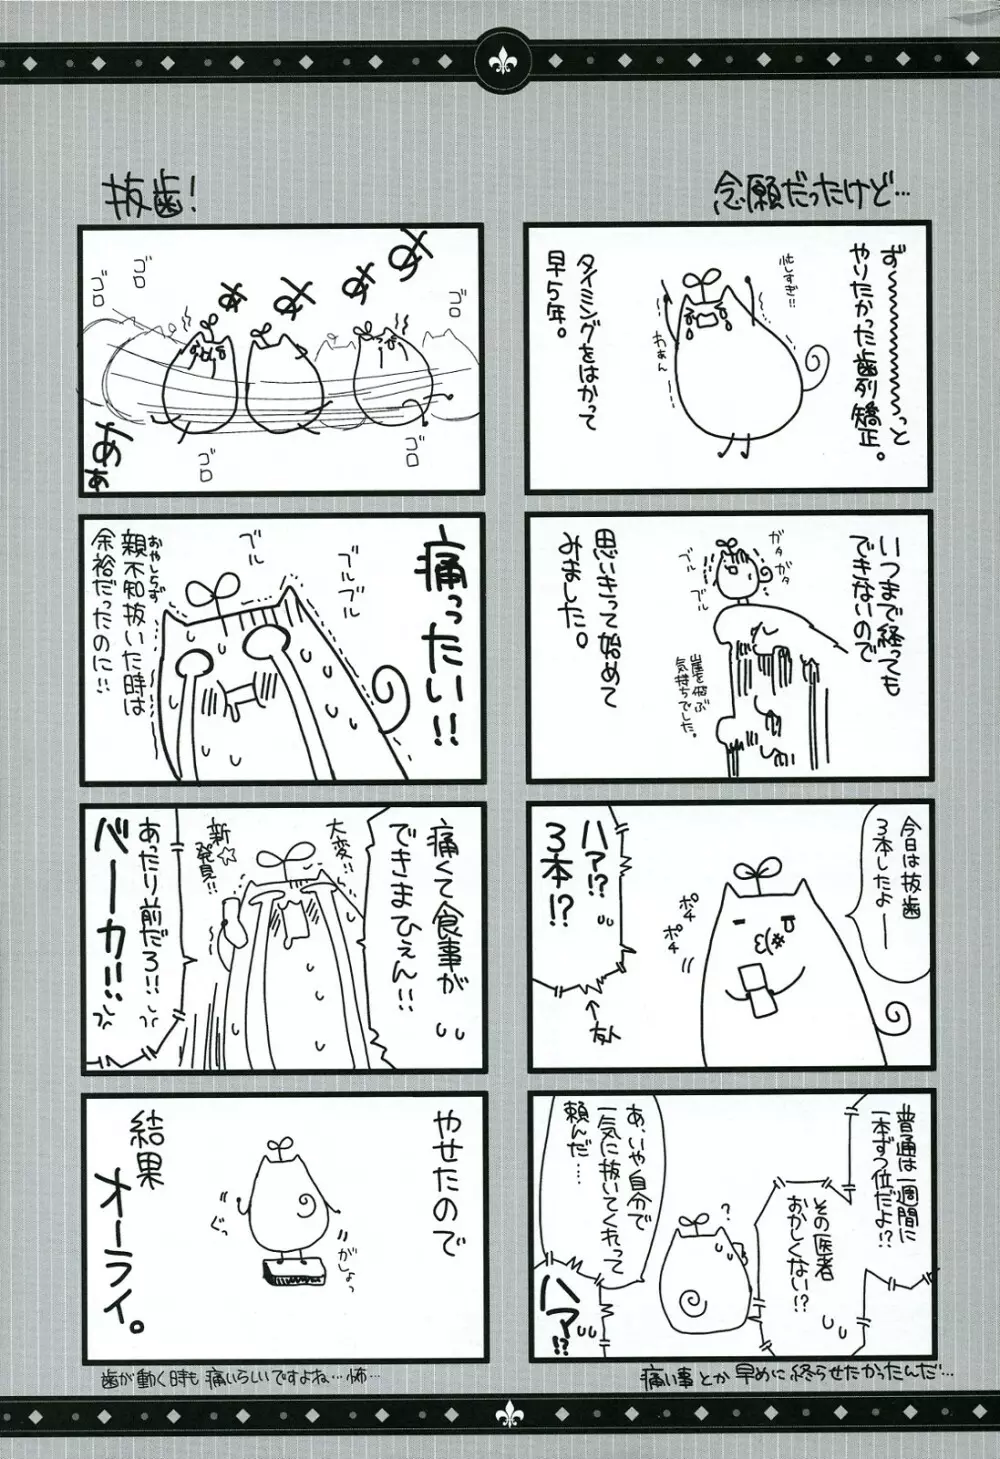 念願だったけど…
ず～～～～っと
やりたかった歯列矯正。
忙しすぎ!!
わぁん
タイミングをはかって
早5年。
いつまで経っても
できないので
ガタガタ
ブルブル
思いきって始めて
みました。
崖を飛ぶ
気持ちでした。
今日は抜歯
3本したよ──
ポチ
ポチ
ハァ!?
3本!?
←友人
普通は一週間に
一本ずつ位だよ!?
その医者
おかしくない!?
?
あ、いや自分で
一気に抜いてくれって
頼んだ……
ハァ!?
痛い事とか早めに終らせたかったんだ…
抜歯！
ああああ
ああ
ゴロ
ゴロ
ゴロ
ゴロ
ゴロ
痛ったい!!
ブル
ブルブル
親不知抜いた時は
おやしらず
余裕だったのに!!
痛くて食事が
できまひぇん!!
大変!!
新☆
発見!!
あたり前だろ!!
バーカ!!
やせたので
がしょっ
ぐっ
結果
オーライ。
歯が動く時も痛いらしいですよね…怖…